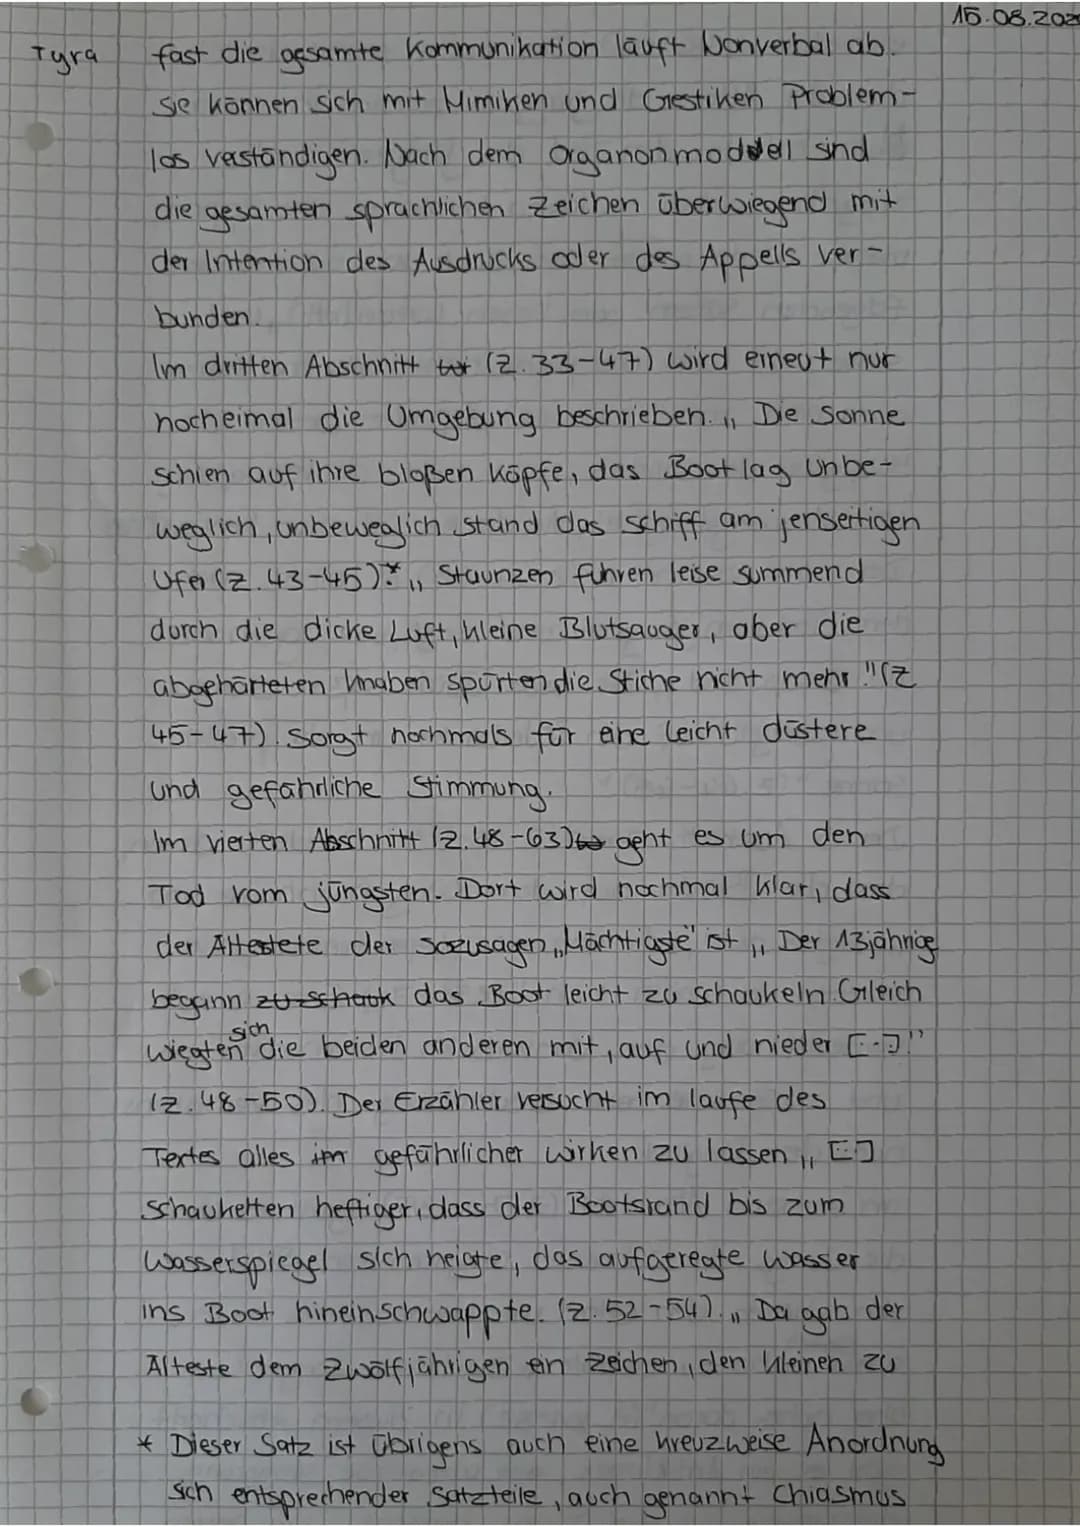 15.08.202
Tyra fast die gesamte Kommunikation läuft Nonverbal ab.
sie können sich mit Mimiken und Gestiken Problem-
los verständigen. Nach dem Organonmodell sind
die gesamten sprachlichen Zeichen überwiegend mit
der Intention des Ausdrucks oder des Appells ver-
bunden.
Im dritten Abschnitt (Z. 33-47) wird erneut nur
nocheimal die Umgebung beschrieben. „Die Sonne
schien auf ihre bloßen Köpfe, das Boot lag unbe-
weglich, unbeweglich stand das Schiff am jenseitigen
Ufer (Z. 43-45).* „Staunzen fuhren leise summend
durch die dicke Luft, kleine Blutsauger, aber die
abgehärteten Knaben spürten die Stiche nicht mehr." (Z
45-47). Sorgt nochmals für eine leicht düstere
und gefährliche Stimmung.
Im vierten Abschnitt (Z. 48-63) geht es um den
Tod vom jüngsten. Dort wird nochmal klar, dass
der Ältestete der sozusagen „Mächtigste" ist „Der 13jährige
begann zu schauk das Boot leicht zu schaukeln. Gleich
wiegten sich die beiden anderen mit, auf und nieder [..]!"
(Z. 48-50). Der Erzähler versucht im laufe des
Textes alles im gefährlicher wirken zu lassen „[..]
schaukelten heftiger, dass der Bootsrand bis zum
Wasserspiegel sich neigte, das aufgeregte Wasser
ins Boot hineinschwappte. (Z. 52-54). „Da gab der
Älteste dem Zwölfjährigen ein Zeichen, den Kleinen zu
* Dieser Satz ist übrigens auch eine kreuzweise Anordnung
sich entsprechender Satzteile, auch genannt Chiasmus